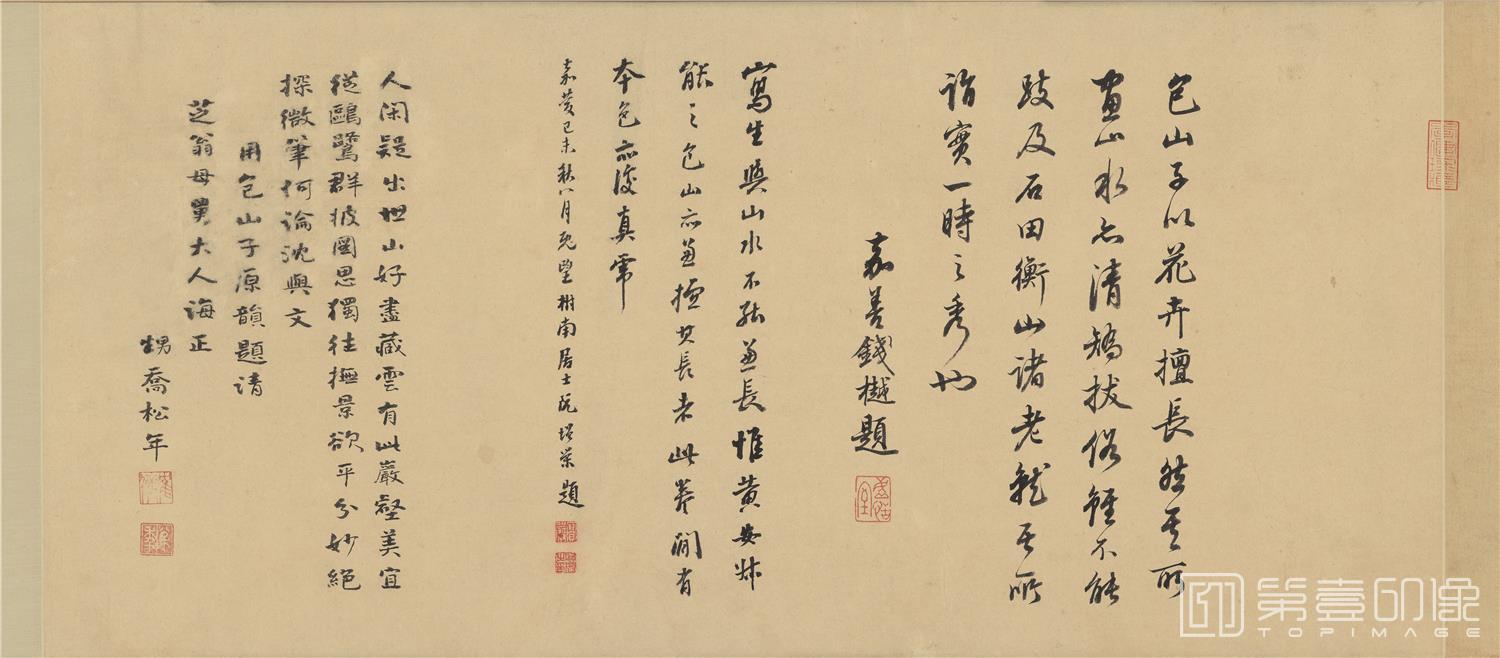 包山子以花卉擅長然其所
畫山水亦清矯拔俗雖不能
跂及石田衡山諸老就其所
詣實一時之秀也
嘉善錢樾題
寫生與山水不能兼長惟黃要叔
能之包山亦兼擅其長者此卷間有
本色亦復真帋
嘉慶己未秋八月既望樹南居士阮培榮題
人閑疑出世山好盡藏雲有此巖壑美宜
從鷗鷺群披圖思獨往撫景欲平分妙絕
探微筆何論沈與文
用包山子原韻題請
芝翁母舅大人誨正
甥喬松年
第壹印像
TOPIMAGE